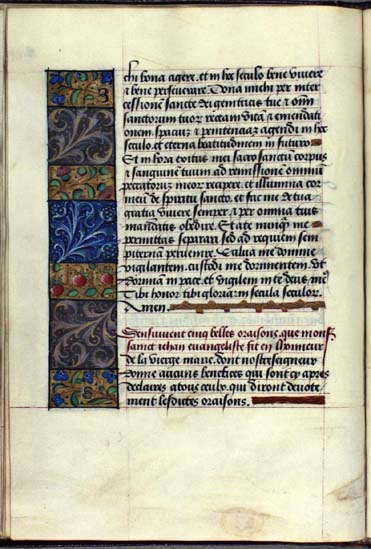 chi bona agere, et in hoc seculo bene vivere
et bene perseverare. Dona michi per inter
cessionem sancte dei genitricis tue et omniu
sanctorum tuorum rectam vita et emendati
onem. spacium et penitenciaz agendi in hoc
seculo. et eterna beatitudinem in futuro.
Et in hora exitus mei sacrosanctum corpus
et sanguinem tuum. ad remissione omniu
peccatorum meor recipere. et illumina cor
meu de spiritu sancto. et fac me ex tua
gratia vivere semper. et per omnia tuis
mandatis obedire. Et a te nunq me
permittas separari. sed ad requiem sem
piternam pervenire. Salva me domine
vigilantem. custodi me dormientem. Ut
dormiam in pace. et vigilem in te deus me
Tibi honor tibi gloria: in secula seculor.
Amen.
Sensuivent cinq belles oraisons. que mons
sainct iehan euangeliste fit en lhonneur
de la vierge marie. dont nostreseigneur
donne aucuns benefices qui sont cy apres
declaires a tous ceulx. qui diront devote
ment lesdictes oraisons.